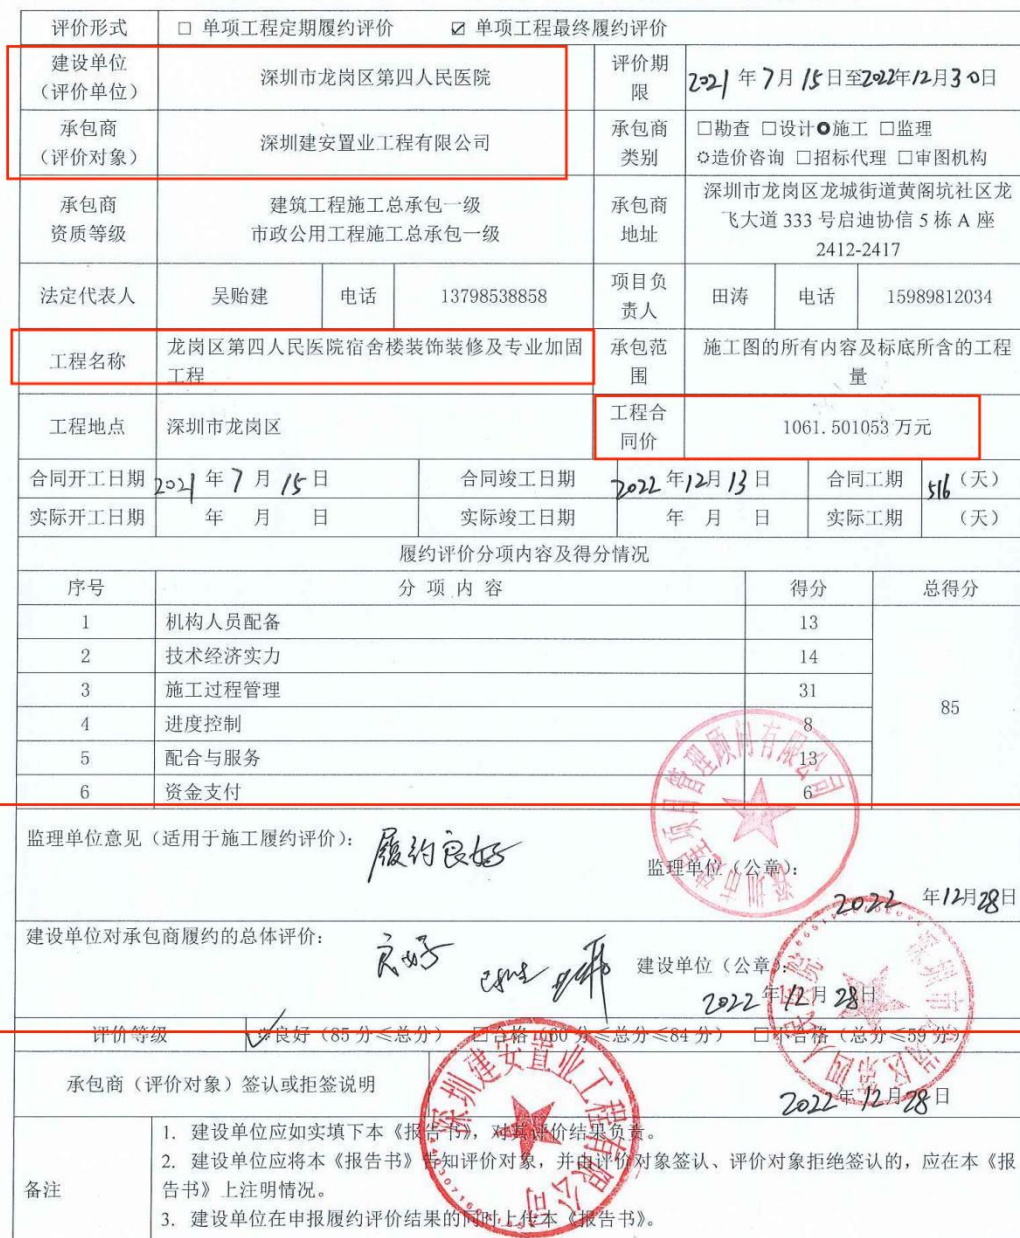 评价形式 □ 单项工程定期履约评价 ☑ 单项工程最终履约评价
建设单位
（评价单位）
深圳市龙岗区第四人民医院
评价期
限
2021 年 7 月 15 日至2022年12月30日
承包商
（评价对象）
深圳建安置业工程有限公司
承包商
类别
□勘查 □设计 施工 □监理
造价咨询 □招标代理 □审图机构
承包商
资质等级
建筑工程施工总承包一级
市政公用工程施工总承包一级
承包商
地址
深圳市龙岗区龙城街道黄阁坑社区龙
飞大道 333 号启迪协信 5 栋 A 座
2412-2417
法定代表人 吴贻建 电话 13798538858
项目负
责人
田涛 电话 15989812034
工程名称
龙岗区第四人民医院宿舍楼装饰装修及专业加固
工程
承包范
围
施工图的所有内容及标底所含的工程
量
工程地点 深圳市龙岗区
工程合
同价
1061.501053 万元
合同开工日期 2021 年 7 月 15 日 合同竣工日期 2022 年 12月 13 日 合同工期 516（天）
实际开工日期 年 月 日 实际竣工日期 年 月 日 实际工期 （天）
履约评价分项内容及得分情况
序号 分 项 内 容 得分 总得分
1 机构人员配备 13
2 技术经济实力 14
3 施工过程管理 31
85
4 进度控制 8
5 配合与服务 13
6 资金支付 6
监理单位意见（适用于施工履约评价）：
履约良好
监理单位（公章）：
2022 年12月28日
建设单位对承包商履约的总体评价：
良好
建设单位（公章）：
2022 年 12 月 28日
评价等级 良好（85 分≤总分） □合格（60 分≤总分≤84 分） □不合格（总分≤59 分）
承包商（评价对象）签认或拒签说明
2022年 12月28日
备注
1. 建设单位应如实填下本《报告书》，对其评价结果负责。
2. 建设单位应将本《报告书》告知评价对象，并由评价对象签认、评价对象拒绝签认的，应在本《报
告书》上注明情况。
3. 建设单位在申报履约评价结果的同时上传本《报告书》。
深圳建安置业工程有限公司